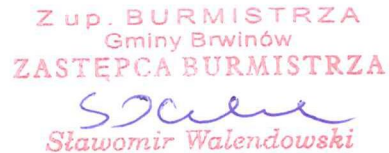 Z up. BURMISTRZA
Gminy Brwinów
ZASTĘPCA BURMISTRZA
Sławomir Walendowski